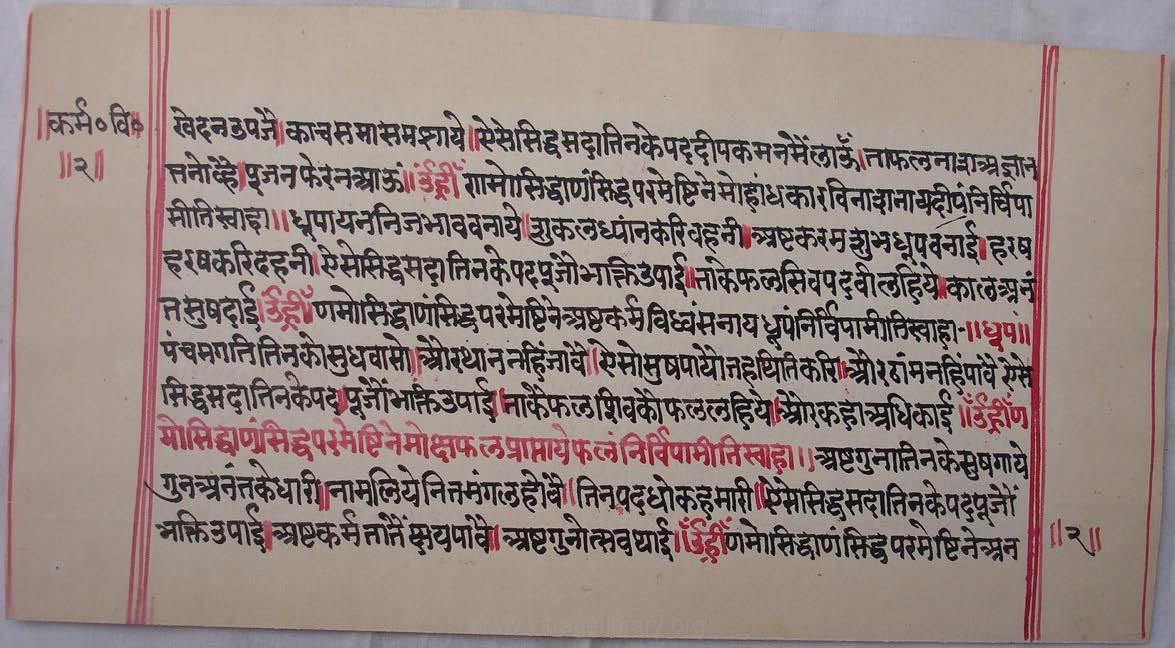 ॥कर्म०वि०
॥२॥
खेदनउपजै॥काचसमासमशाये॥ऐसेसिद्धसदातिनकेपददीपकमनमैंलाऊँ॥ताफलनाशअज्ञान
तनोव्है॥पूजनफेरनआऊं॥उँह्रीँ णमोसिद्धाणंसिद्धपरमेष्टिनेमोहांधकारविनाशनायदीपंनिर्विपा
मीतिस्वाहा॥॥धूपायननिजभाववनाये॥शुकलध्यांनकरिवहनी॥अष्टकरमशुभधूपवनाई॥हरष
हरषकरिदहनी॥ऐसेसिद्धसदातिनकेपदपूजौभक्तिउपाई॥ताकेफलसिवपदवीलहिये॥कालअनं
तसुषदाई॥उँह्रीँ णमोसिद्धाणंसिद्धपरमेष्टिनेअष्टकर्मविध्वंसनायधूपंनिर्विपामीतिस्वाहा-॥धूपं॥
पंचमगतितिनकोसुधवासो॥औरथाननहिंजावै॥ऐसोसुषपायोतहथितिकरि॥औरठांमनहिंपावै ऐसे
सिद्धसदातिनकेपद॥पूजौंभक्तिउपाई॥ताकैफलशिवकोफललहिये॥औरकहाअधिकाई॥उँह्रीँण
मोसिद्धाणंसिद्धपरमेष्टिनेमोक्षफलप्राप्तायेफलंनिर्विपामीतिस्वाहा॥॥अष्टगुनातिनकेसुषगाये
गुनअनंतकेधारी॥नामलियेनितमंगलहोवै॥तिनपदधोकहमारी॥ऐसेसिद्धसदातिनकेपदपूजौं
भक्तिउपाई॥अष्टकर्मतातैंक्षयपावै॥अष्टगुनोत्सवथाई॥उँह्रीँणमोसिद्धाणंसिद्धपरमेष्टिनेअन
॥२॥